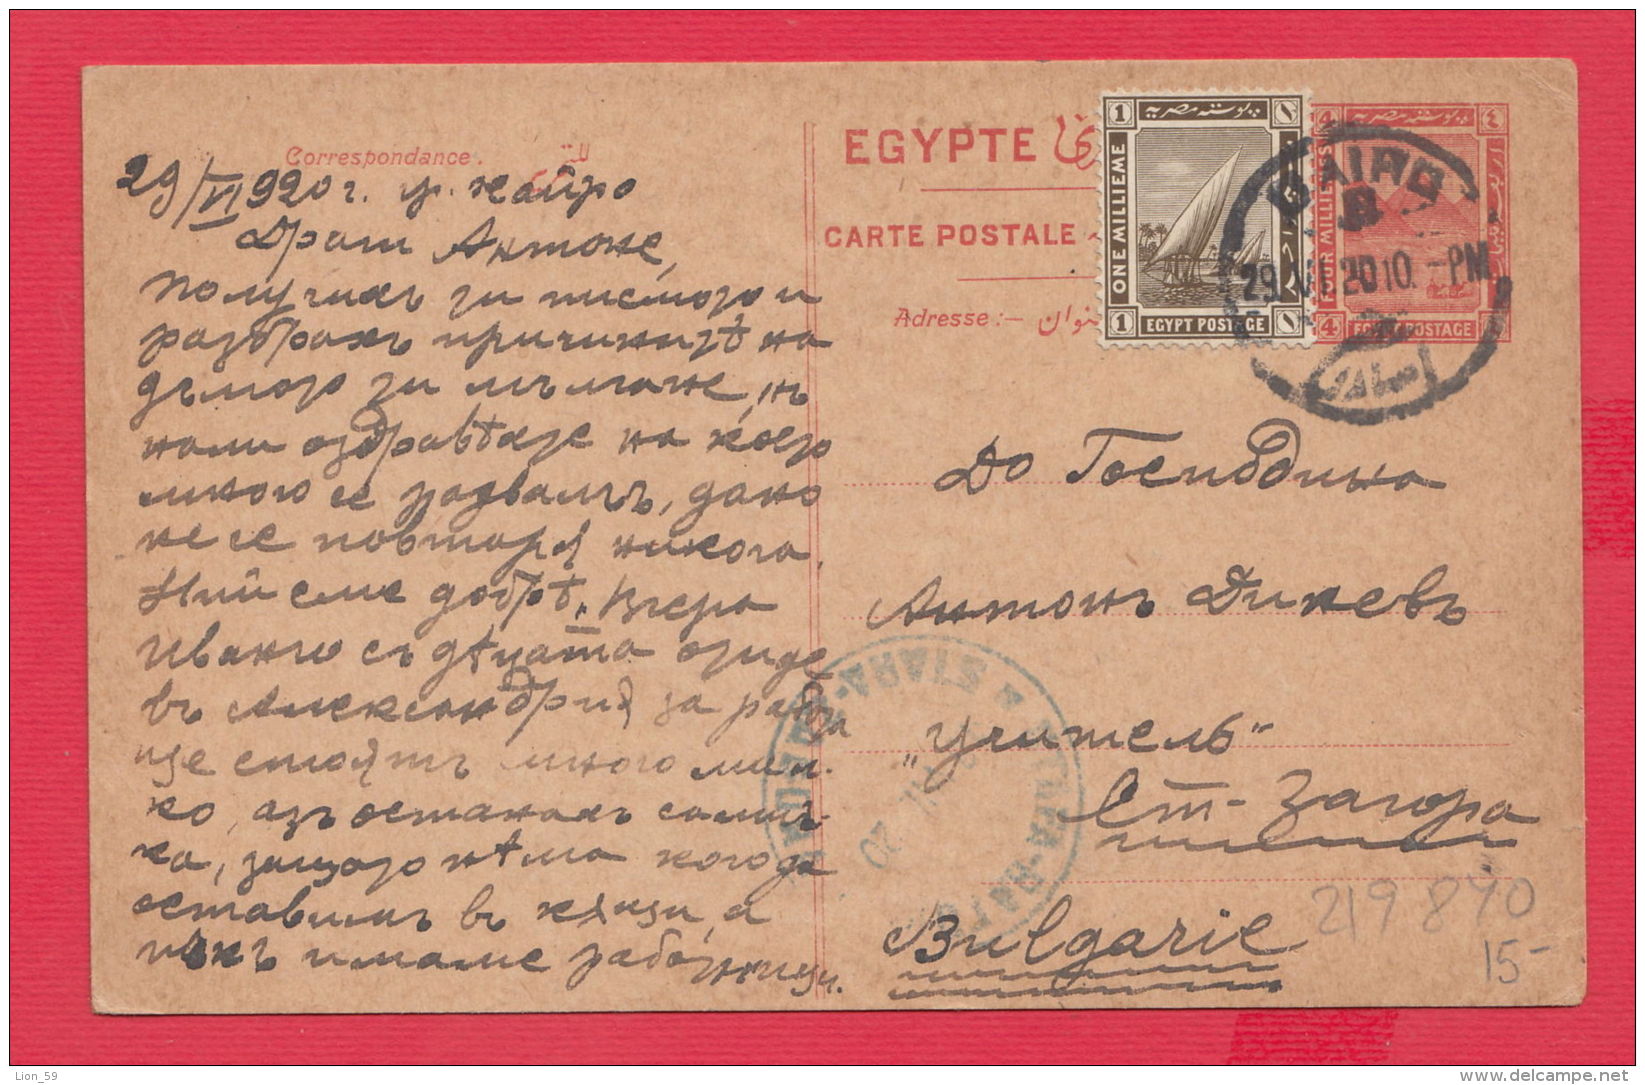 Correspondance.
29/VI 920 г. гр. Кайро
Драги Антоне,
Получихъ ти писмото и
разбрахъ причинитѣ на
дългото ти мълчане, н
нали оздравѣхте на което
много се радвамъ, дано
не се повтаря никога.
Ний сме добрѣ. Вчера
Иванчо съ дѣцата отиде
въ Александрия за
ще стоятъ много мал-
ко, азъ останахъ самич-
ка, защото нѣма кого да
оставимъ въ къщи, а
пъкъ имаме работници.
EGYPTE
CARTE POSTALE
Adresse :- عنوان
1 بوسته مصرية ١
ONE MILLIEME
1 EGYPT POSTAGE ١
4 ٤
FOUR MILLIEMES
4 EGYPT POSTAGE
CAIRO
29.VI.20 10.-PM
До Господина
Антонъ Диневъ
„Учитель“
Ст. Загора
Bulgarie
20
219 840
15-
Lion_59
delcampe.net